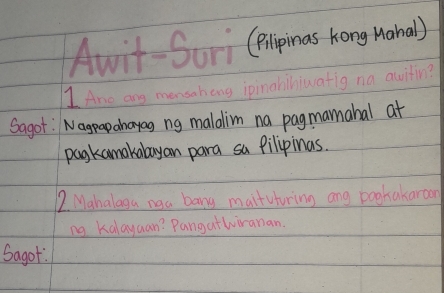 Awit-Suri (Pilipinas kong Mahal)
1 Ano ang mensaheng ipinahihiwatig na awitin?
Sagot: Nagpapahayag ng malalim na pagmamahal at
pagkamakabayan para sa Pilipinas.
2 Mahalaga nga bang maituturing ang pagkakaroon
ng kalayaan? Pangatwiranan.
Sagot: